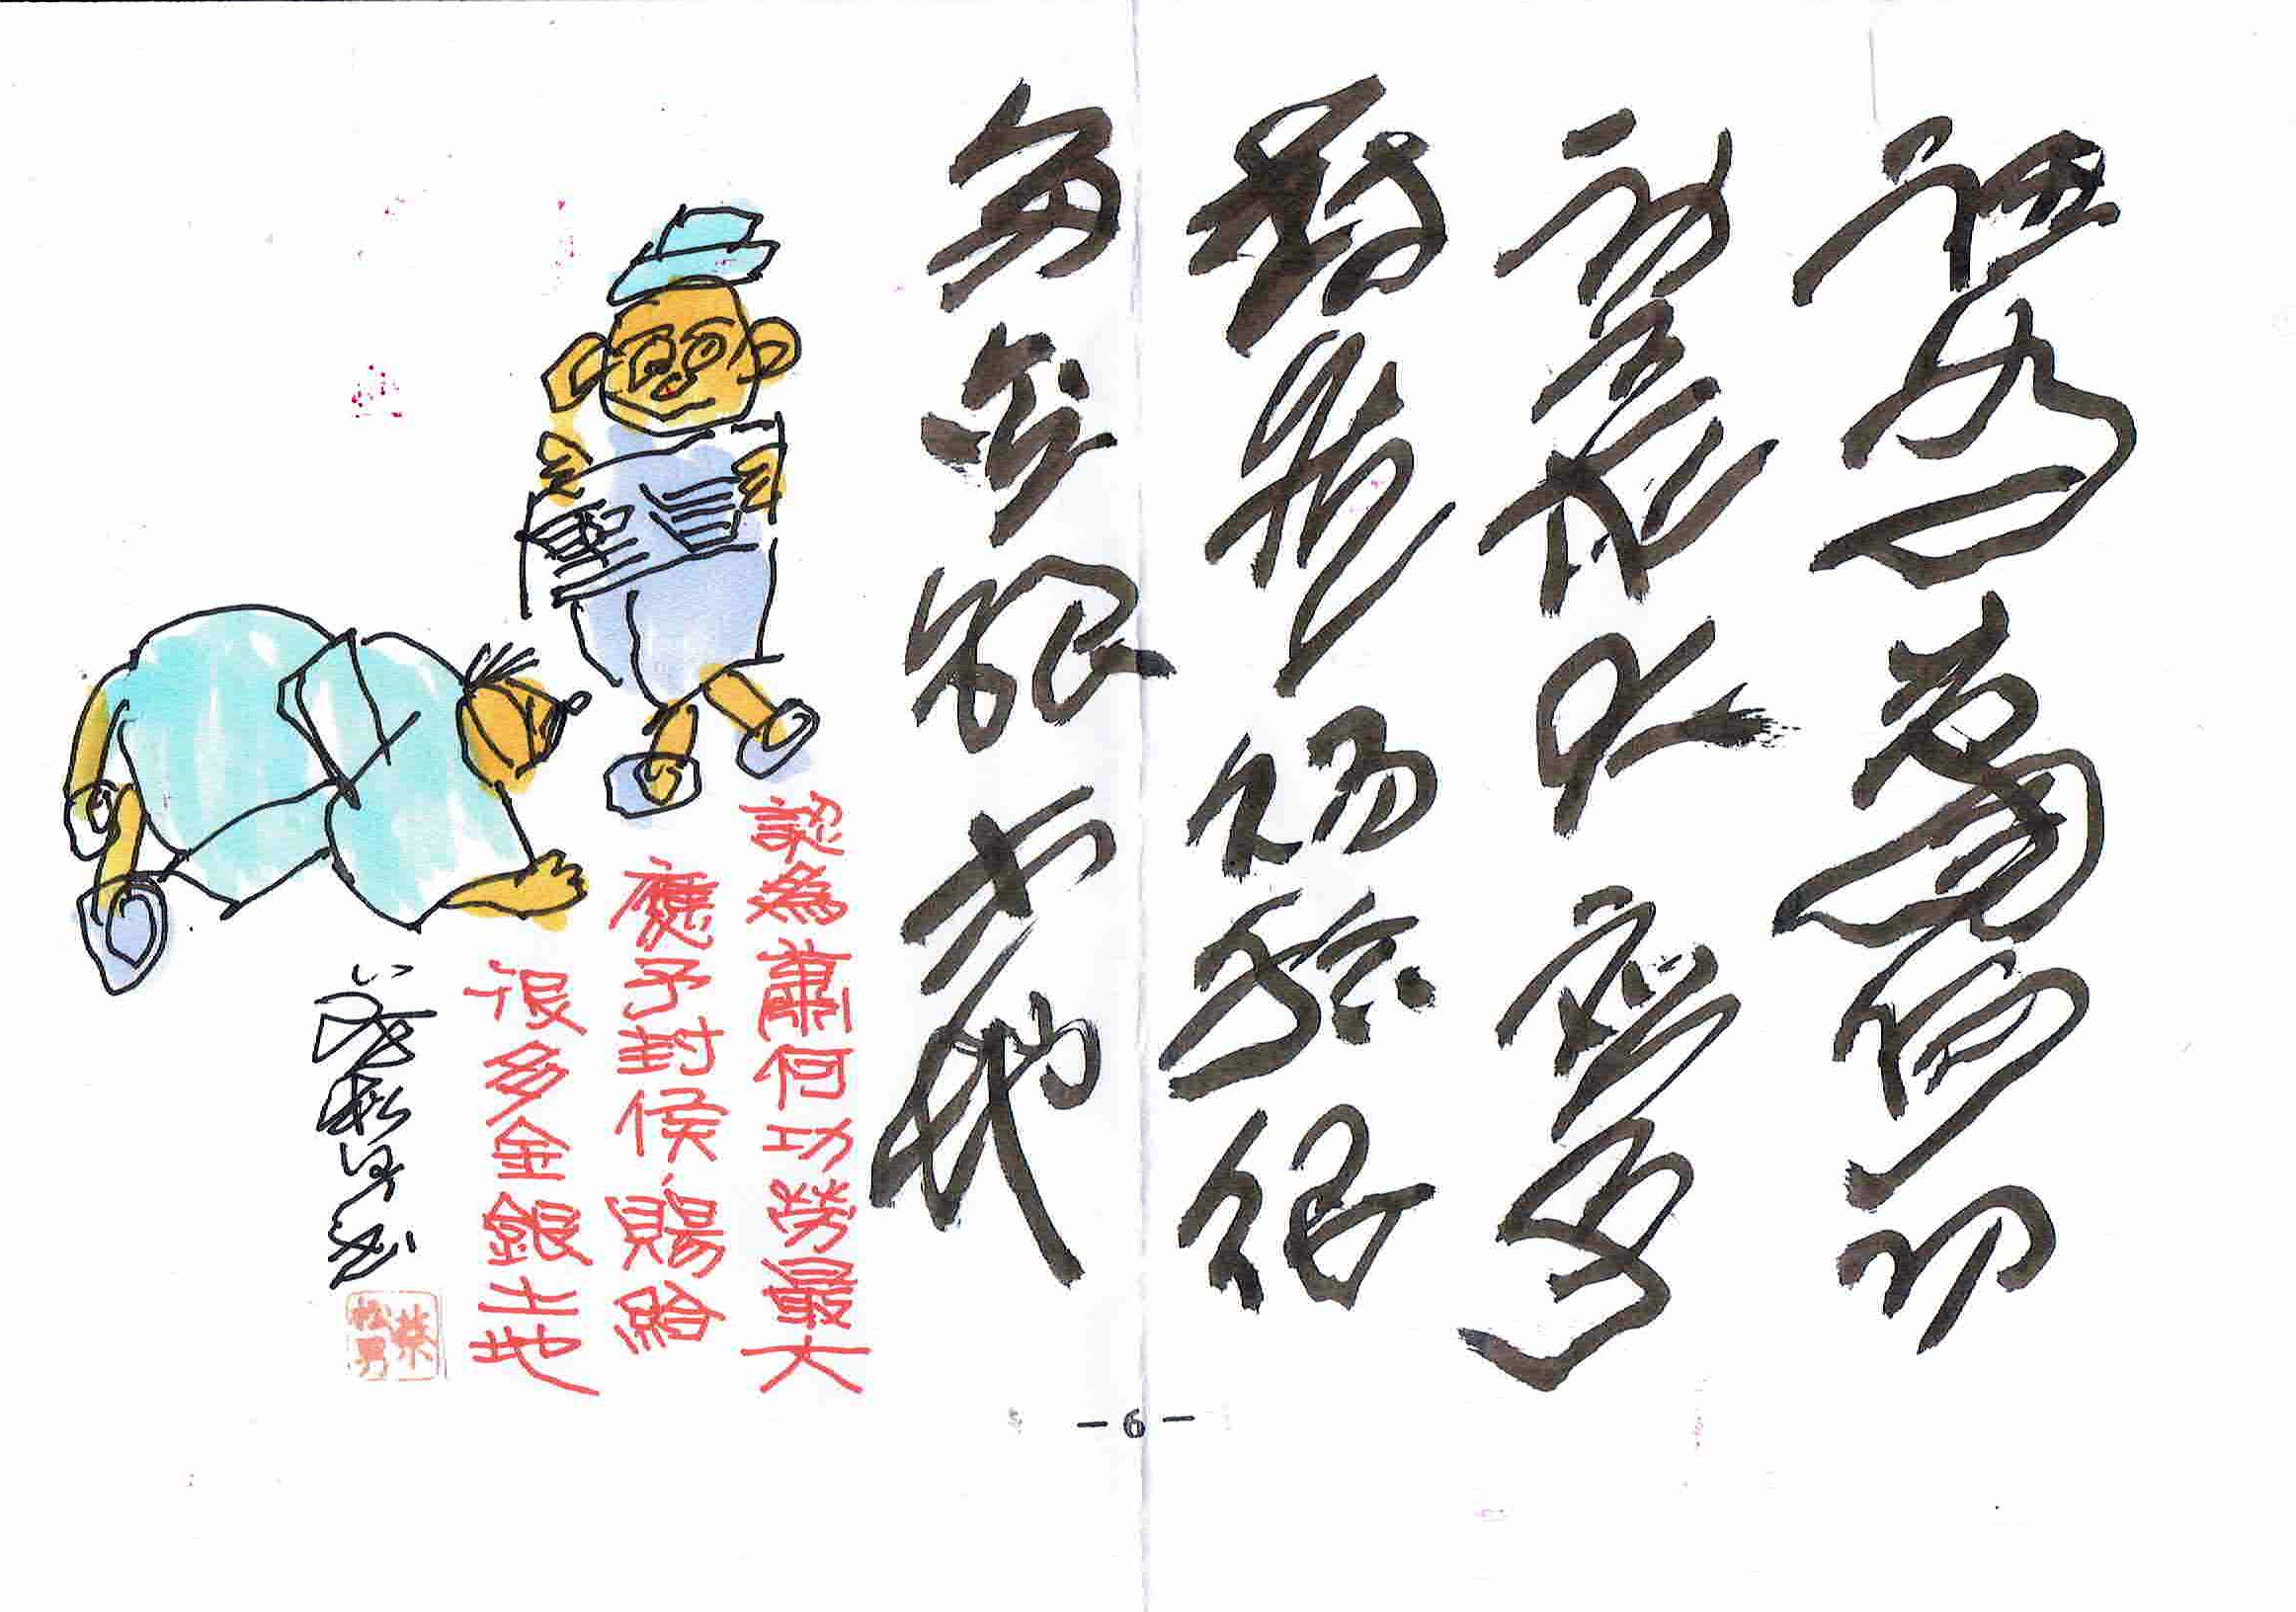 認為蕭何功
勞最大應予
封侯賜給很
多金銀土地
認為蕭何功勞最大
應予封侯，賜給
很多金銀土地
蔡松男
- 6 -